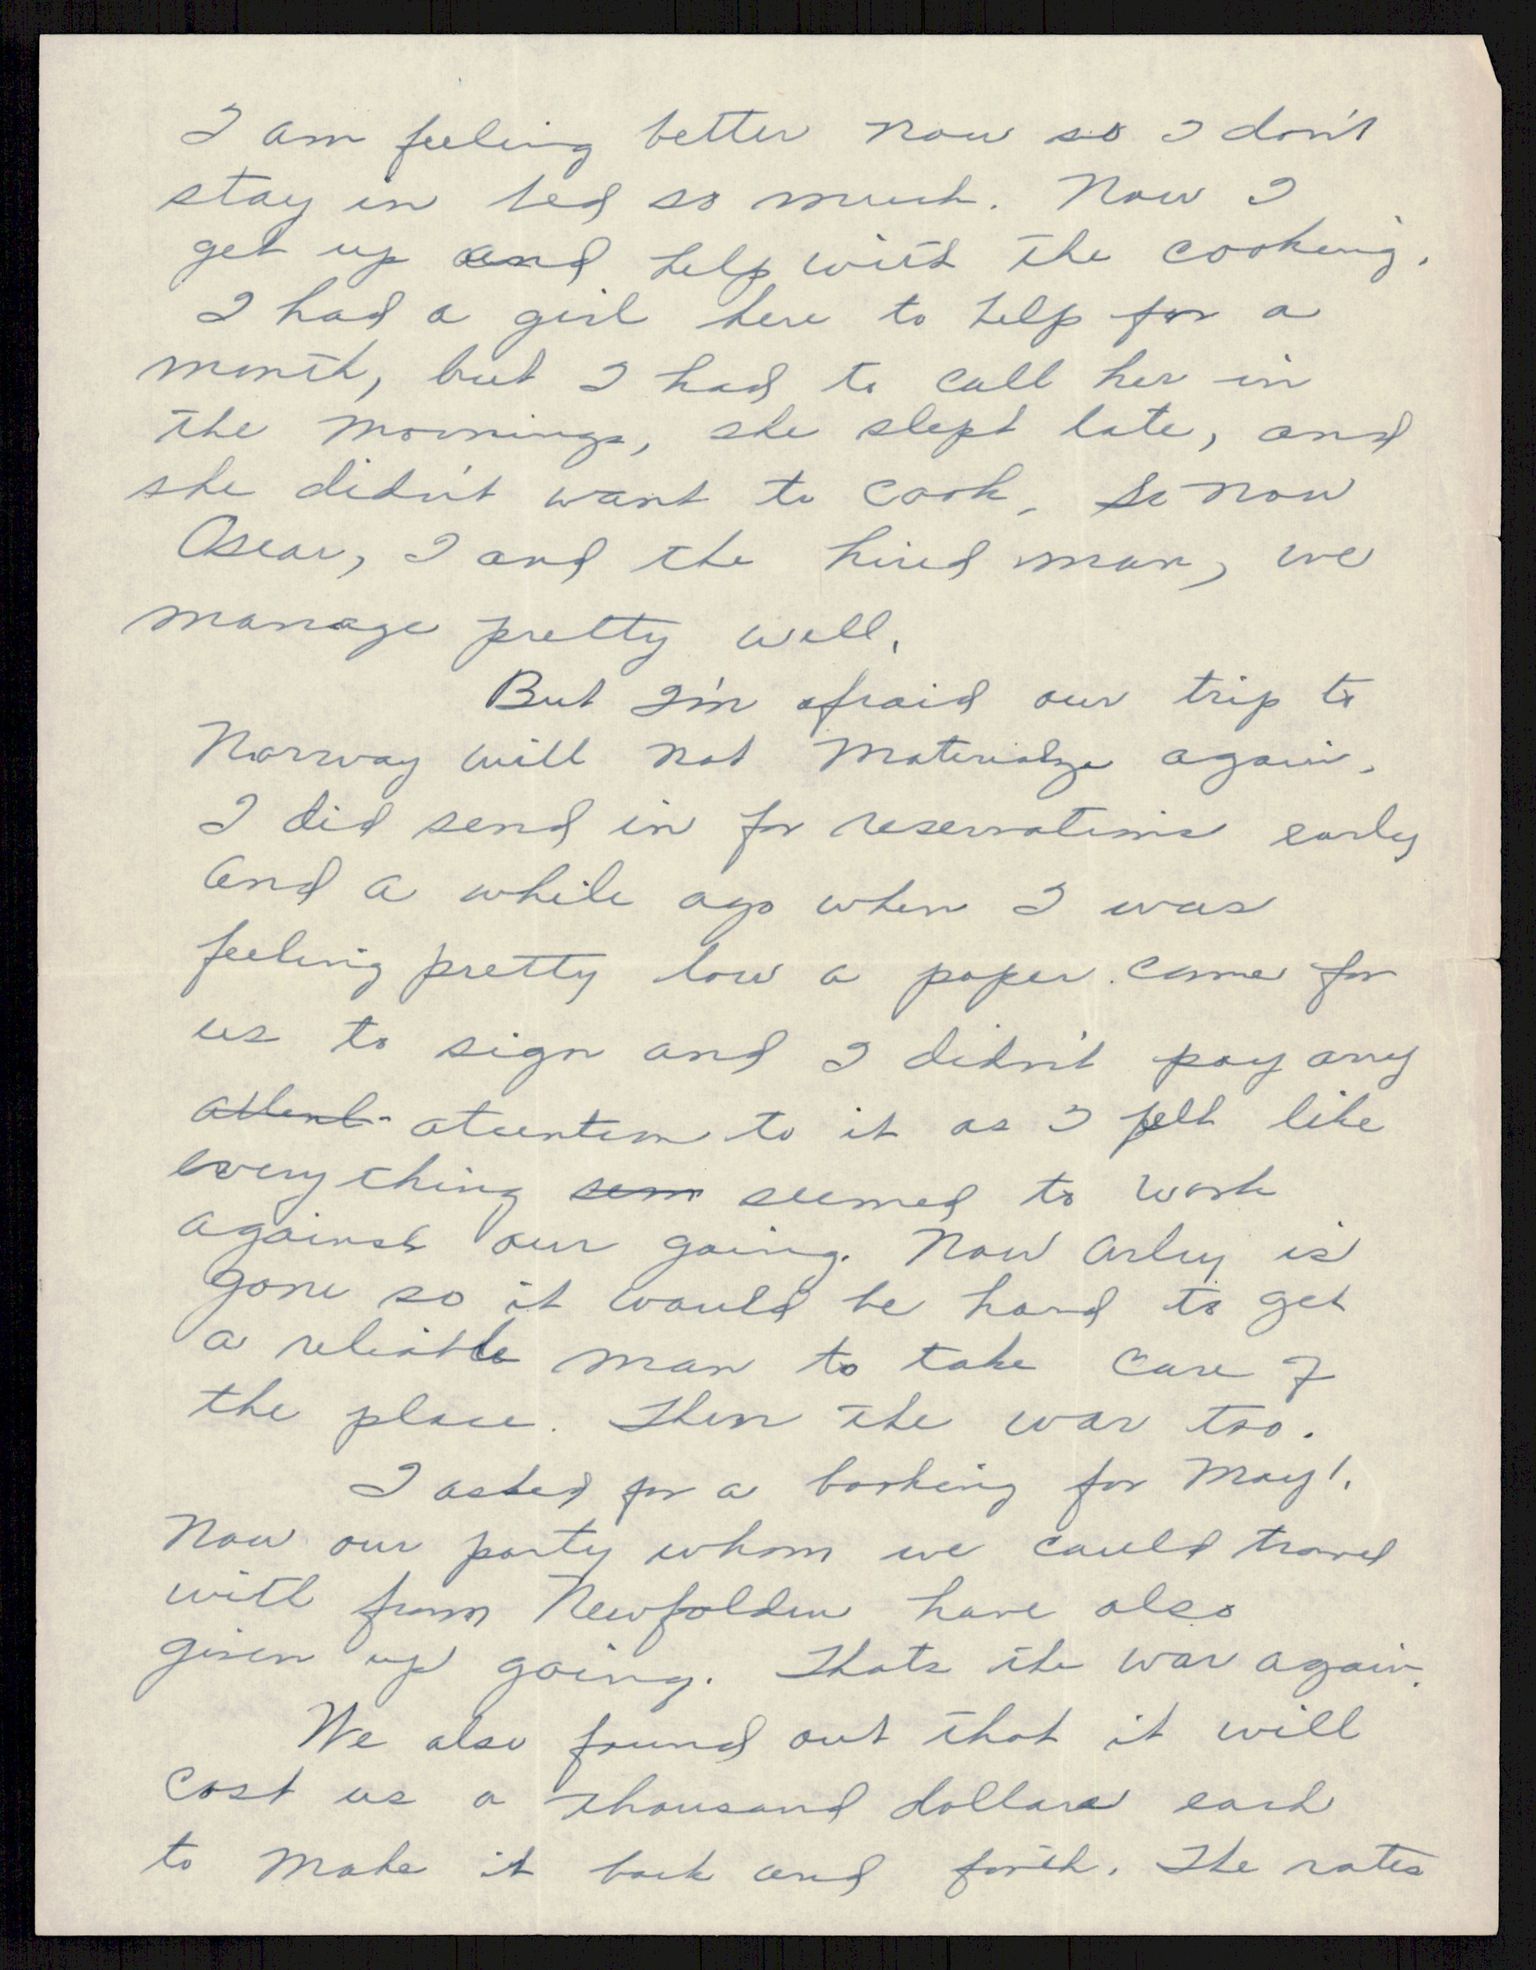 I am feeling better now so I don't
stay in bed so much. Now I
get up and help with the cooking.
I had a girl here to help for a
month, but I had to call her in
the mornings, she slept late, and
she didn't want to cook. So now
Oscar, I and the hired man, we
manage pretty well.
But I'm afraid our trip to
Norway will not materialze again.
I did send in for reservations early
and a while ago when I was
feeling pretty low a paper came for
us to sign and I didn't pay any
attent- atuention to it as I felt like
everything sem seemed to work
against our going. Now Arley is
gone so it would be hard to get
a reliable man to take care of
the place. Then the war too.
I asked for a booking for May 1.
Now our party whom we could travel
with from Newfolden have also
given up going. Thats the war again.
We also found out that it will
cost us a thousand dollars each
to make it back and forth. The rates